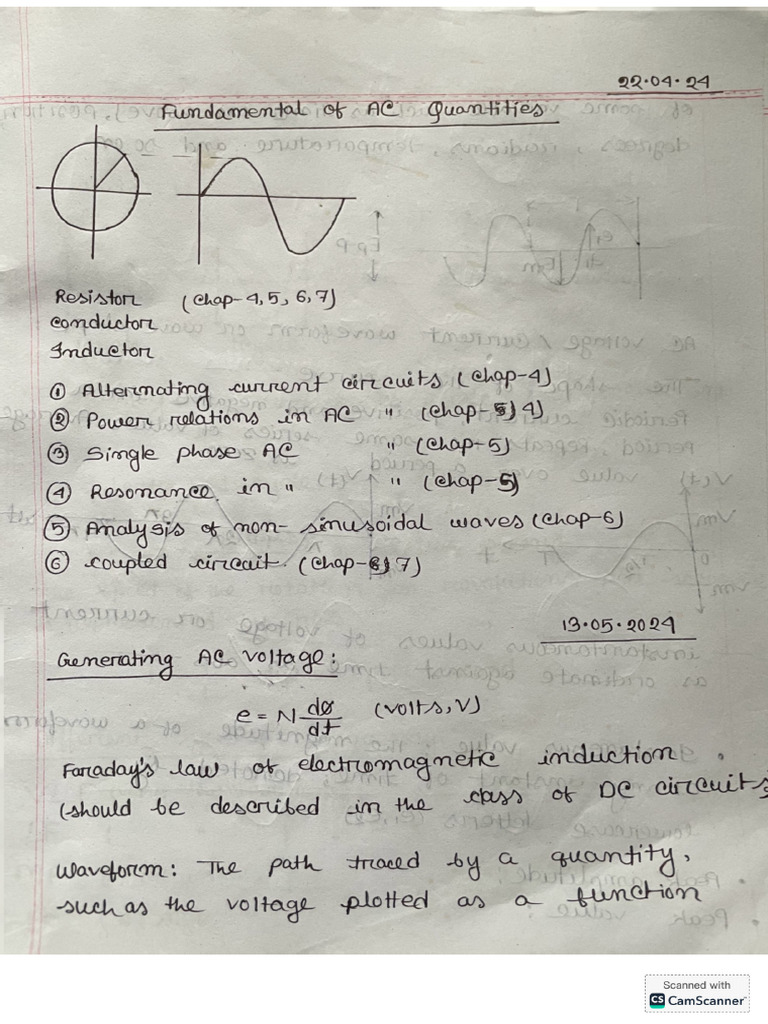 22.04.24
Fundamental of AC Quantities
Resistor (Chap-4,5,6,7)
Conductor
Inductor
① Alternating current circuits (Chap-4)
② Power relations in AC " (Chap-4)
③ Single phase AC " (Chap-5)
④ Resonance in " " (Chap-5)
⑤ Analysis of non-sinusoidal waves (Chap-6)
⑥ Coupled circuit (Chap-7)
13.05.2024
Generating AC Voltage:
e = N dø/dt (Volts, V)
Faraday's law of electromagnetic induction
(should be described in the class of DC circuits
Waveform: The path traced by a quantity,
such as the voltage plotted as a function
Scanned with
CS CamScanner